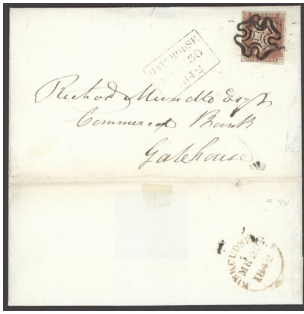 GATEHOUSE
30
1842
Richd Mundle Esqr
Commercl Bank
Gatehouse
KIRKCUDBRIGHT
MR
1842